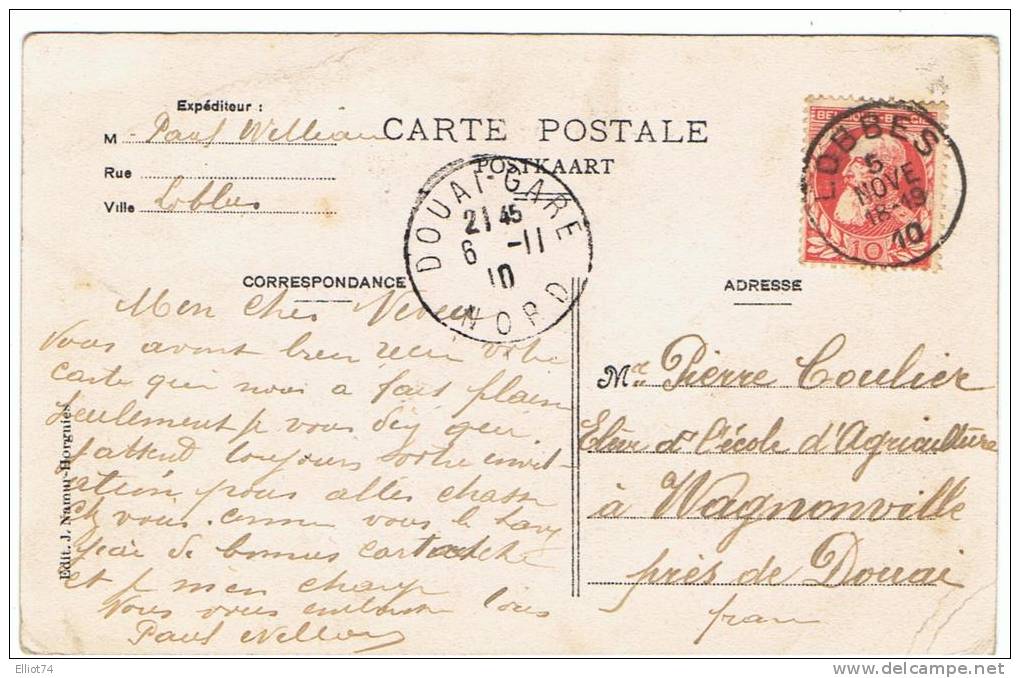 Expéditeur :
M Paul
Rue
Ville Lobbes
CARTE POSTALE
POSTKAART
DOUAI-GARE
21 45
6 -11
10
NORD
LOBBES
5
NOVE
18-19
10
10
CORRESPONDANCE
ADRESSE
Mon cher Neveu
Nous avont bien recu votre
carte qui nous a fait plaisir
seulement je vous dis que
j'attend toujours votre invit-
ation pour aller chasse
chez vous. comme vous le savez
j'ai de bonnes
et je m'en charge
Nous vous embrasse tous
Paul
Mr. Pierre Coulier
Elève à l'école d'Agriculture
à Wagnonville
près de Douai
france
Edit. J. Namur-Horgnies
Elliot74
delcampe.net